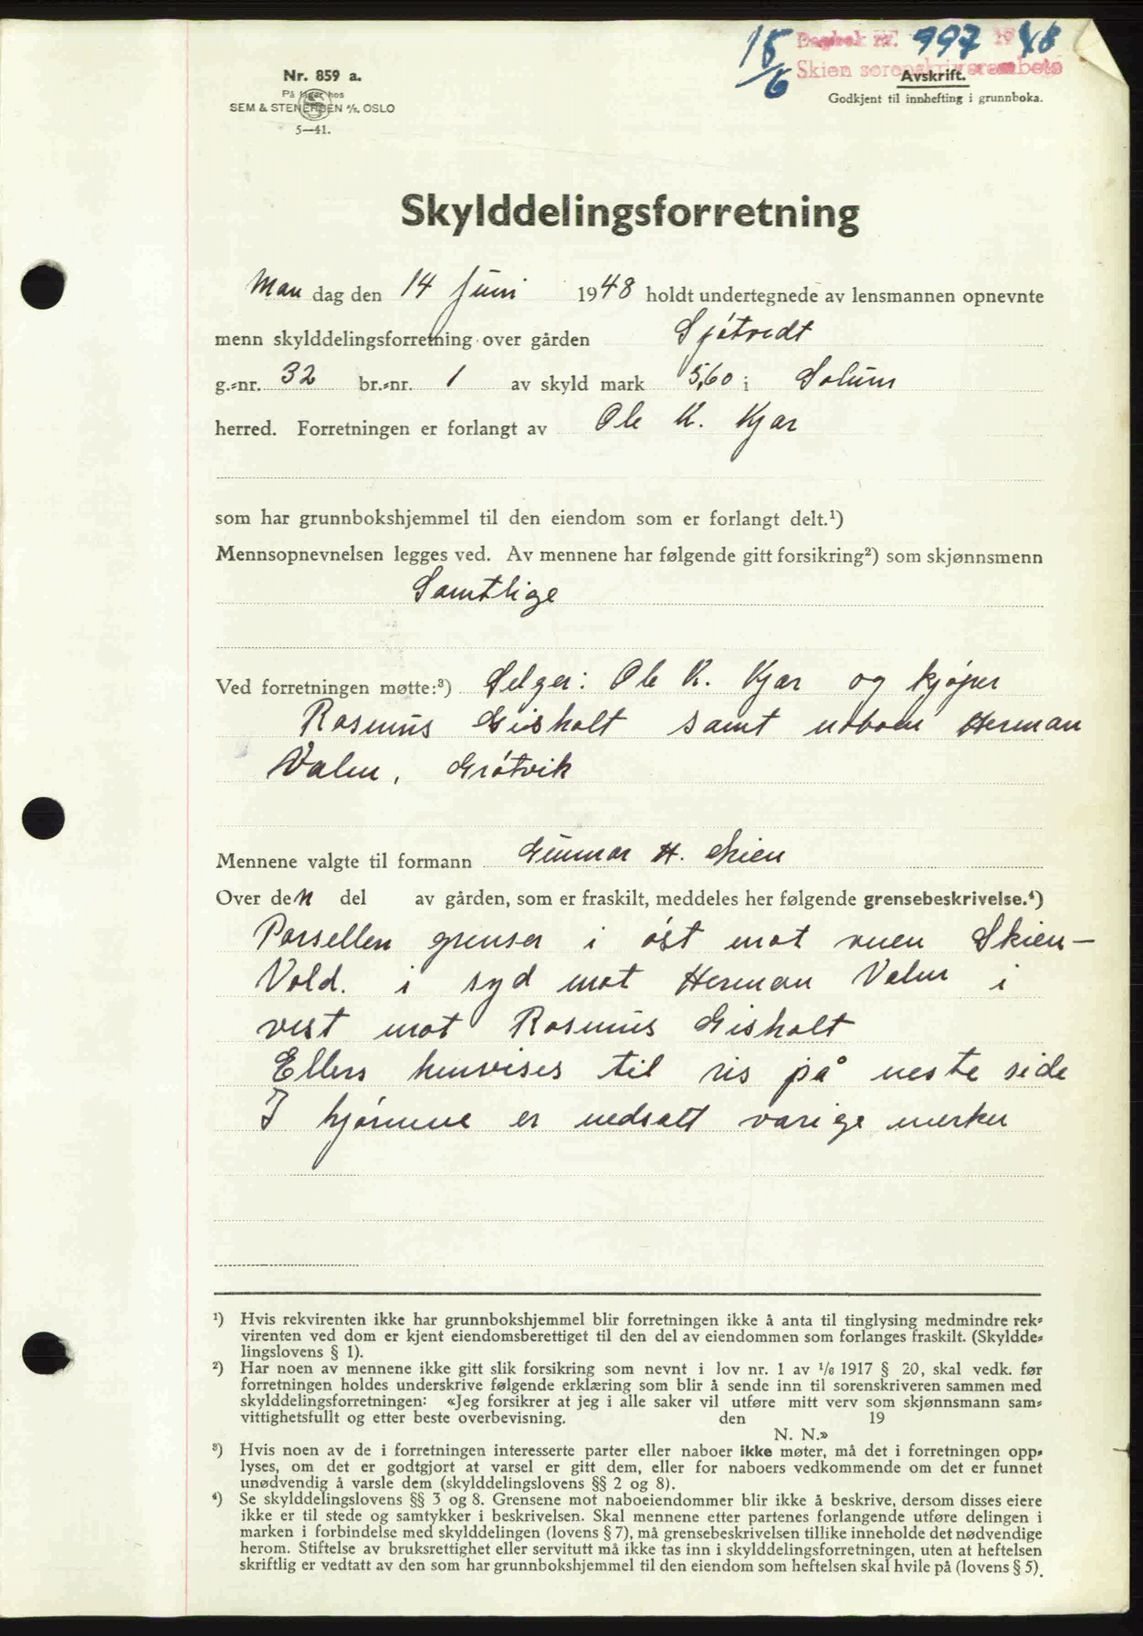 15/6 Dagbok nr. 997 1948
Skien sorenskriverembete
Nr. 859 a.
På lager hos
SEM & STENERSEN A/S. OSLO
5—41.
Avskrift.
Godkjent til innhefting i grunnboka.
Skylddelingsforretning
Man dag den 14 Juni 1948 holdt undertegnede av lensmannen opnevnte
menn skylddelingsforretning over gården Sjötvedt
g.-nr. 32 br.-nr. 1 av skyld mark 5,60 i Solum
herred. Forretningen er forlangt av Ole K. Kjær
som har grunnbokshjemmel til den eiendom som er forlangt delt.¹)
Mennsopnevnelsen legges ved. Av mennene har følgende gitt forsikring²) som skjønnsmenn
Samtlige
Ved forretningen møtte:³) Selger: Ole K. Kjær og kjøper
Rasmus Gisholt samt naboen Herman
Valen, Grötvik
Mennene valgte til formann Gunnar H. Skien
Over den del av gården, som er fraskilt, meddeles her følgende grensebeskrivelse.⁴)
Parsellen grenser i öst mot veien Skien-
Vold. i syd mot Herman Valen i
vest mot Rasmus Gisholt
Ellers henvises til ris på neste side
I hjörnene er nedsatt varige merker
¹) Hvis rekvirenten ikke har grunnbokshjemmel blir forretningen ikke å anta til tinglysing medmindre rek-
virenten ved dom er kjent eiendomsberettiget til den del av eiendommen som forlanges fraskilt. (Skyldde-
lingslovens § 1).
²) Har noen av mennene ikke gitt slik forsikring som nevnt i lov nr. 1 av 1/6 1917 § 20, skal vedk. før
forretningen holdes underskrive følgende erklæring som blir å sende inn til sorenskriveren sammen med
skylddelingsforretningen: «Jeg forsikrer at jeg i alle saker vil utføre mitt verv som skjønnsmann sam-
vittighetsfullt og etter beste overbevisning. den 19
N. N.»
³) Hvis noen av de i forretningen interesserte parter eller naboer ikke møter, må det i forretningen opp-
lyses, om det er godtgjort at varsel er gitt dem, eller for naboers vedkommende om det er funnet
unødvendig å varsle dem (skylddelingslovens §§ 2 og 8).
⁴) Se skylddelingslovens §§ 3 og 8. Grensene mot naboeiendommer blir ikke å beskrive, dersom disses eiere
ikke er til stede og samtykker i beskrivelsen. Skal mennene etter partenes forlangende utføre delingen i
marken i forbindelse med skylddelingen (lovens § 7), må grensebeskrivelsen tillike inneholde det nødvendige
herom. Stiftelse av bruksrettighet eller servitutt må ikke tas inn i skylddelingsforretningen, uten at heftelsen
skriftlig er vedtatt av den som har grunnbokshjemmel til den eiendom som heftelsen skal hvile på (lovens § 5).